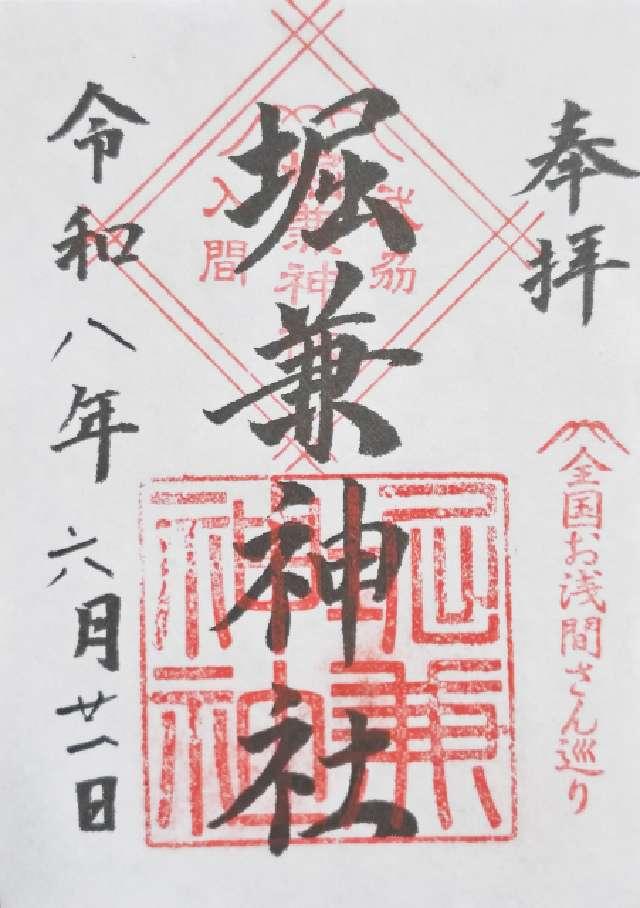 奉拝
全国お浅間さん巡り
武劦
堀兼神社
入間
堀兼神社
令和八年六月廿一日